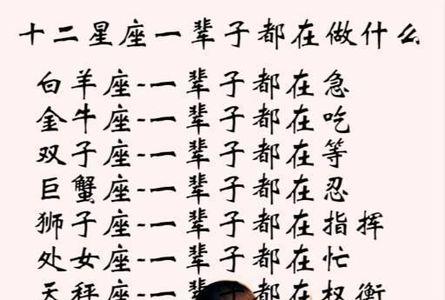 十二星座一辈子都在做什么
白羊座-一辈子都在急
金牛座-一辈子都在吃
双子座-一辈子都在等
巨蟹座-一辈子都在忍
狮子座-一辈子都在指挥
处女座-一辈子都在忙
天秤座-一辈子都在权衡